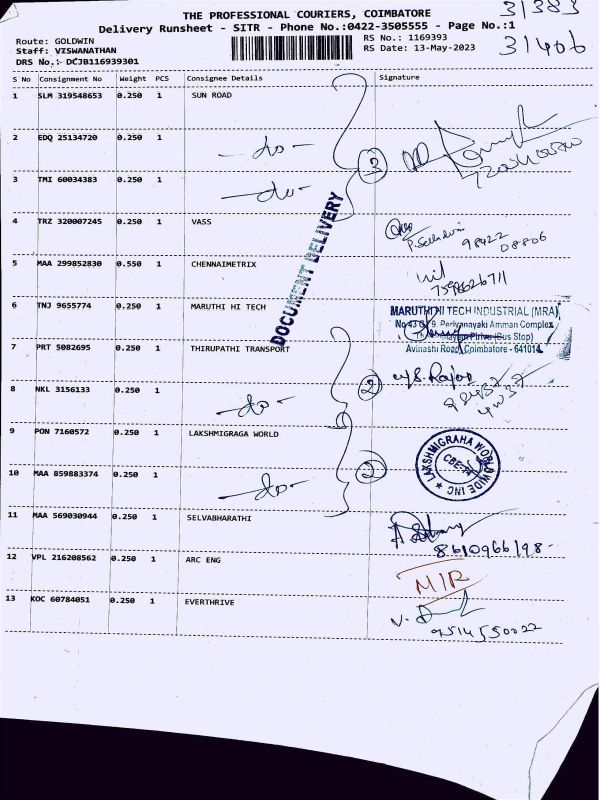 31383
THE PROFESSIONAL COURIERS, COIMBATORE
Delivery Runsheet - SITR - Phone No.:0422-3505555 - Page No.:1
31406
Route: GOLDWIN
RS No.: 1169393
Staff: VISWANATHAN
RS Date: 13-May-2023
DRS No.:- DCJB116939301
S No Consignment No Weight PCS Consignee Details Signature
1 SLM 319548653 0.250 1 SUN ROAD
2 EDQ 25134720 0.250 1 -do-
3
3 TMI 60034383 0.250 1 -do-
4 TRZ 320007245 0.250 1 VASS
98422
08806
5 MAA 299852830 0.550 1 CHENNAIMETRIX
DOCUMENT DELIVERY
6 TNJ 9655774 0.250 1 MARUTHI HI TECH
MARUTHI HI TECH INDUSTRIAL (MRA)
No 43 9, Periyanayaki Amman Complex
(Bus Stop)
Avinashi Road, Coimbatore - 641014
7 PRT 5082695 0.250 1 THIRUPATHI TRANSPORT
2
8 NKL 3156133 0.250 1 -do-
9 PON 7160572 0.250 1 LAKSHMIGRAGA WORLD
2
LAKSHMIGRAHA WORLDWIDE INC
CBE-14
10 MAA 859883374 0.250 1 -do-
11 MAA 569030944 0.250 1 SELVABHARATHI
8610966198-
12 VPL 216208562 0.250 1 ARC ENG
M/R
13 KOC 60784051 0.250 1 EVERTHRIVE
9514550022